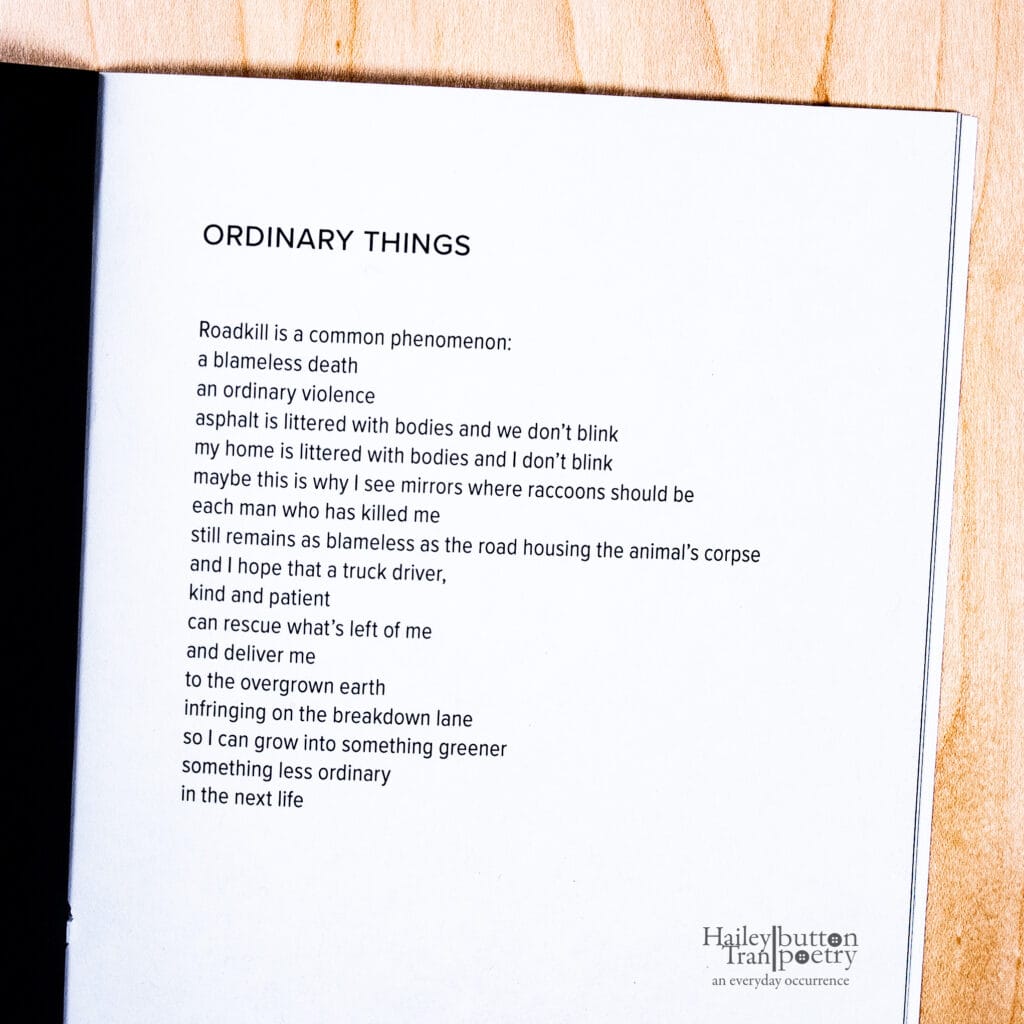 ORDINARY THINGS
Roadkill is a common phenomenon:
a blameless death
an ordinary violence
asphalt is littered with bodies and we don’t blink
my home is littered with bodies and I don’t blink
maybe this is why I see mirrors where raccoons should be
each man who has killed me
still remains as blameless as the road housing the animal’s corpse
and I hope that a truck driver,
kind and patient
can rescue what’s left of me
and deliver me
to the overgrown earth
infringing on the breakdown lane
so I can grow into something greener
something less ordinary
in the next life
Hailey button
Tran poetry
an everyday occurrence